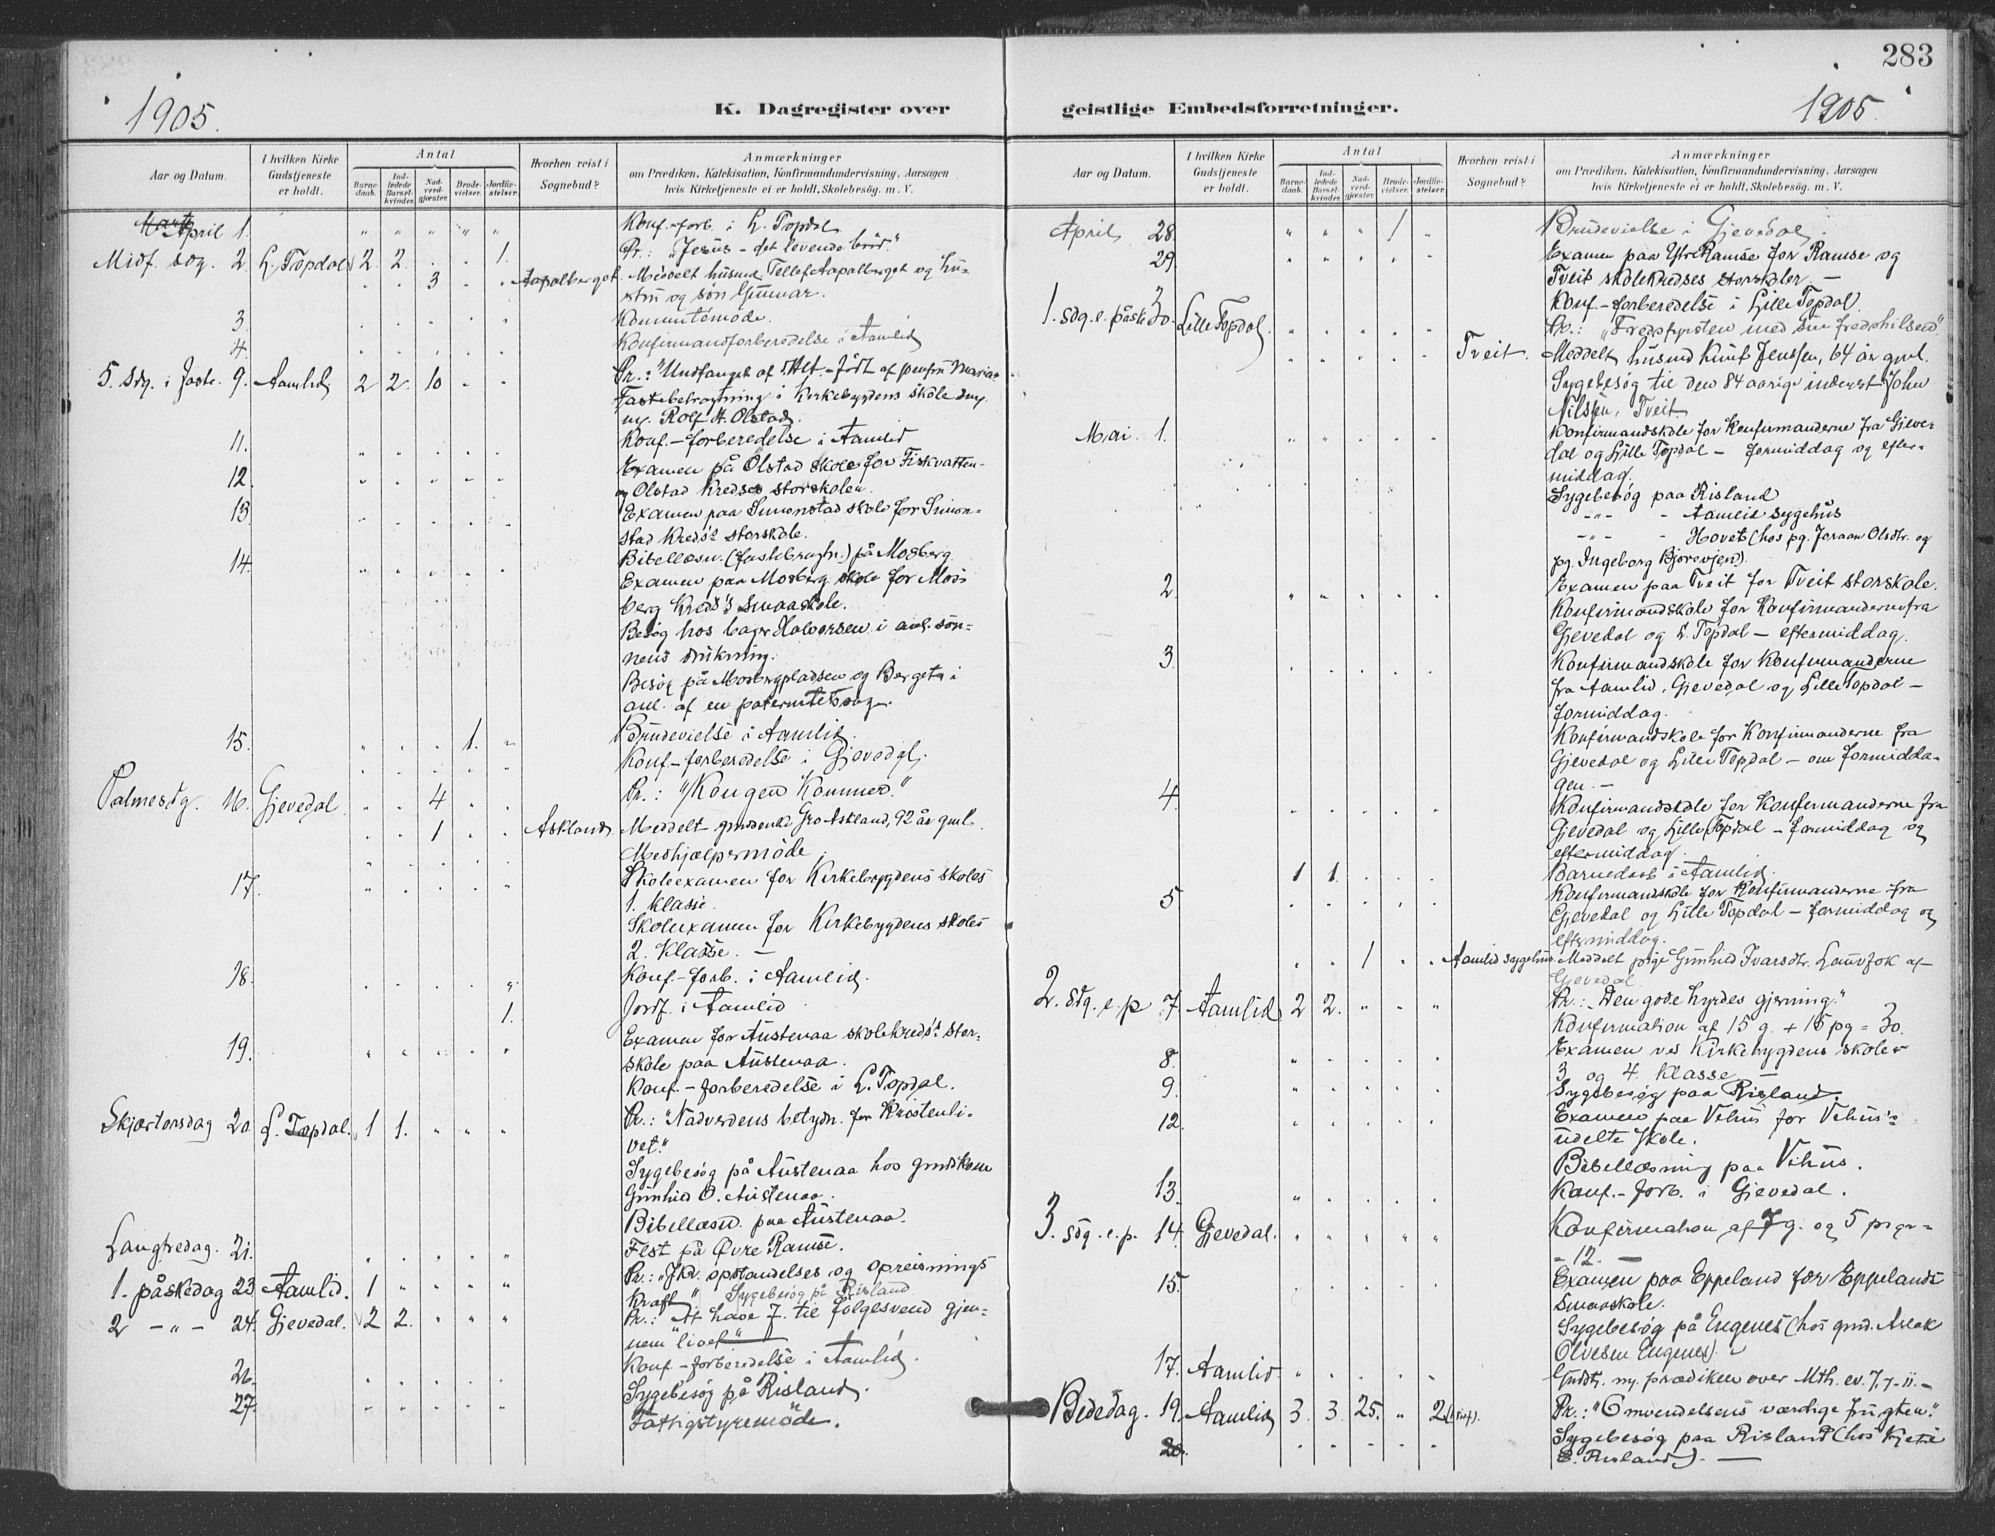 283
1905.
K. Dagregister over
geistlige Embedsforretninger.
1905.
Aar og Datum.
I hvilken Kirke Gudstjeneste er holdt.
Antal
Barnedaab.
Indledede Barselkvinder.
Nadverdgjæster.
Brudevielser.
Jordfæstelser.
Hvorhen reist i Sognebud?
Anmærkninger
om Prædiken, Katekisation, Konfirmandundervisning, Aarsagen
hvis Kirketjeneste ei er holdt, Skolebesøg. m. V.
April 1. " " " " " Konf.-forb. i L. Topdal
Midf. søg. 2 L. Topdal 2 2 . . 1. Pr.: "Jesus - det levende brød."
. . 3 . . Aapalberget. Meddelt husmd. Tellef Aapalberget og hu-
stru og søn Gunnar.
3. Kommunemøde.
4. Konfirmandforberedelse i Aamlid
5. Sdg. i Faste. 9. Aamlid 2 2. 10 . . Pr.: "Undfanget af d. H. A. - født af jomfru Maria"
Fastebetragtning i Kirkebygdens skole
Rolf H. Olstad.
11. Konf.-forberedelse i Aamlid
12. Examen på Olstad skole for Fiskvatten-
og Olstad Kredses storskoler.
13 Examen paa Simonstad skole for Simon-
stad Kreds's storskole.
14. Bibellæsn. (fastebragtn.) på Mosberg
Examen paa Mosberg skole for Mos-
berg Kreds's Smaaskole.
Besøg hos bager Halvorsen i anl. søn-
nens drukning.
Besøg på Mosbergpladsen og Berget i
anl. af en paternitetssag.
15. . . . 1. " Brudevielse i Aamlid.
Konf-forberedelse i Gjevedal.
Palmesdg. 16. Gjevedal . . 4 . . Pr.: "Kongen Kommer."
. . 1 . . Askland. Meddelt Gro Askland, 92 år gml.
Medhjælpermøde.
17. Skoleexamen for Kirkebygdens skoles
1. Klasse.
Skoleexamen for Kirkebygdens skoles
2. Klasse. -
18. Konf-forb. i Aamlid.
1. Jordf. i Aamlid
19. Examen for Austenaa skolekreds's stor-
skole paa Austenaa.
Konf.-forberedelse i L. Topdal.
Skjærtorsdag 20 L. Topdal. 1 1. " " " Pr.: "Nadverdens betydn. for Kristenli-
vet."
Sygebesøg på Austenaa hos
Gunhild O. Austenaa.
Bibellæsn. paa Austenaa.
Langfredag. 21. Fest på Øvre Ramse.
1. påskedag 23 Aamlid. 1 " " " " Pr.: "J. Kr. opstandelses og opreisnings
Kraft" Sygebesøg på Risland
2 - " - 24. Gjevedal. 2 2. " " " Pr.: "At have J. til følgesvend gjen-
nem livet"
26. Konf-forberedelse i Aamlid.
27. Sygebesøg på Risland.
Fattigstyremøde.
Aar og Datum.
I hvilken Kirke Gudstjeneste er holdt.
Antal
Barnedaab.
Indledede Barselkvinder.
Nadverdgjæster.
Brudevielser.
Jordfæstelser.
Hvorhen reist i Sognebud?
Anmærkninger
om Prædiken, Katekisation, Konfirmandundervisning, Aarsagen
hvis Kirketjeneste ei er holdt, Skolebesøg. m. V.
April 28. " " " 1 " Brudevielse i Gjevedal.
29. Examen paa Ytre Ramse for Ramse og
Tveit skolekredses storskoler -
Konf-forberedelse i Lille Topdal.
1. sdg. e. påske 30. Lille Topdal. Pr.: "Fredsfyrsten med sin fredshilsen"
Tveit. Meddelt husmd Knut Jenssen, 64 år gml.
Sygebesøg til den 84 aarige inderst John
Nilssen, Tveit.
Mai. 1. Konfirmandskole for Konfirmanderne fra Gjeve-
dal og Lille Topdal - formiddag og efter-
middag.
Sygebesøg paa Risland
- " - - Aamlid sygehus
- " - - Hovet (hos pg. Joraan Olsdtr. og
pg. Ingeborg Bjorevjen).
2. Examen paa Tveit for Tveit storskole.
Konfirmandskole for Konfirmanderne fra
Gjevedal og L. Topdal - eftermiddag.
3. Konfirmandskole for Konfirmanderne
fra Aamlid, Gjevedal og Lille Topdal -
formiddag.
Konfirmandskole for Konfirmanderne fra
Gjevedal og Lille Topdal - om formidda-
gen. -
4. Konfirmandskole for Konfirmanderne fra
Gjevedal og Lille Topdal - formiddag og
eftermiddag.
1 1. . . . Barnedaab i Aamlid.
5 Konfirmandskole for Konfirmanderne fra
Gjevedal og Lille Topdal - formiddag og
eftermiddag.
. . 1 . . Aamlid sygehus. Meddelt pige Gunhild Ivarsdtr. Lauvfok af
Gjevedal
2. sdg. e. p 7. Aamlid 2 2. " " " Pr.: "Den gode hyrdes gjerning."
Konfirmation af 15 g. + 15 pg = 30.
8. Examen ved Kirkebygdens skoles
3 og 4. Klasse
9. Sygebesøg paa Risland.
12. Examen paa Vehus for Vehus's
udelte skole.
Bibellæsning paa Vehus.
13. Konf.-forb. i Gjevedal.
3. sdg. e. p. 14. Gjevedal. " " " " " Konfirmation af 7 g. og 5 piger =
= 12. -
15. Examen paa Eppeland for Eppelands
Smaaskole.
Sygebesøg på Engenes (hos gmd. Aslak
Olvesen Engenes).
17. Aamlid. Gudstj. m. prædiken over Mth. ev. 7, 7-11. -
Bededag. 19. Aamlid 3. 3. 25. " 2 Pr.: "Omvendelsens værdige frugter."
20. Sygebesøg paa Risland (hos
E. Risland). -